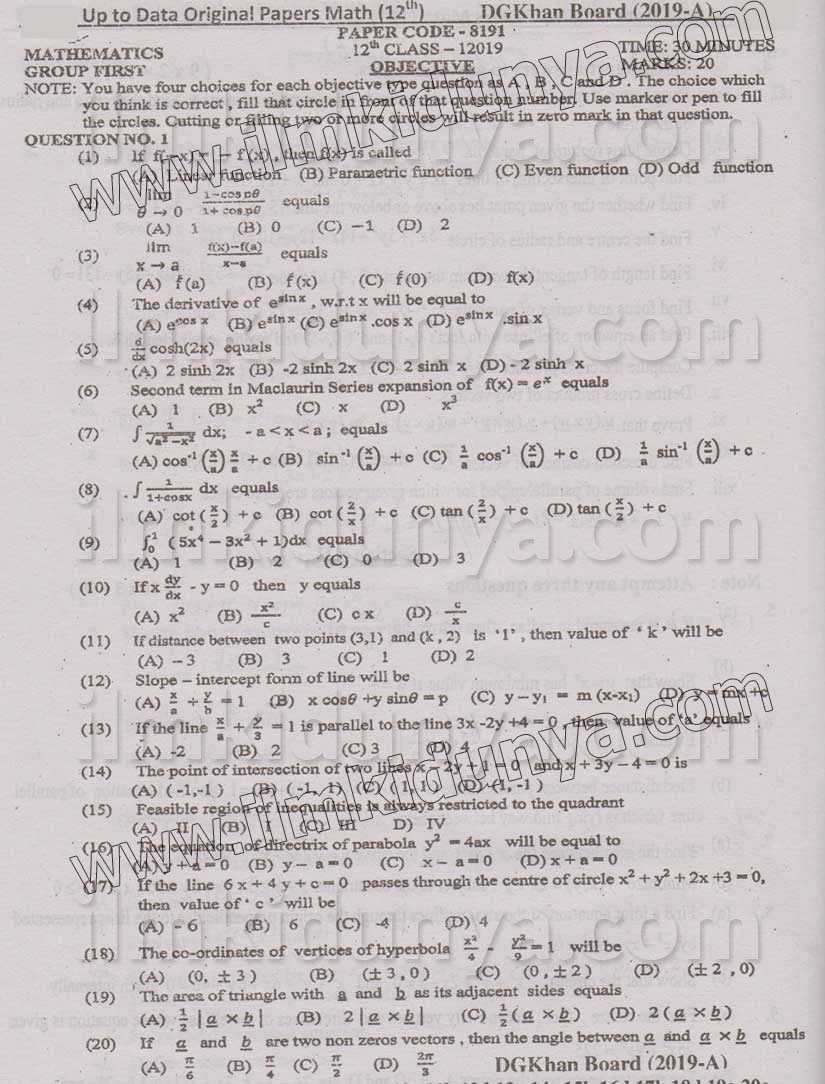 Up to Data Original Papers Math (12th) DGKhan Board (2019-A)
PAPER CODE - 8191
MATHEMATICS 12th CLASS – 12019 TIME: 30 MINUTES
GROUP FIRST OBJECTIVE MARKS: 20
NOTE: You have four choices for each objective type question as A , B , C and D . The choice which
you think is correct , fill that circle in front of that question number. Use marker or pen to fill
the circles. Cutting or filling two or more circles will result in zero mark in that question.
QUESTION NO. 1
(1) If f(-x) = - f(x) , then f(x) is called
(A) Linear function (B) Parametric function (C) Even function (D) Odd function
(2) lim θ → 0 (1-cos pθ)/(1+cos pθ) equals
(A) 1 (B) 0 (C) −1 (D) 2
(3) lim x → a (f(x)−f(a))/(x−a) equals
(A) f́(a) (B) f́(x) (C) f́(0) (D) f(x)
(4) The derivative of e^sin x , w.r.t x will be equal to
(A) e^cos x (B) e^sin x (C) e^sin x .cos x (D) e^sin x .sin x
(5) d/dx cosh(2x) equals
(A) 2 sinh 2x (B) -2 sinh 2x (C) 2 sinh x (D) - 2 sinh x
(6) Second term in Maclaurin Series expansion of f(x) = e^x equals
(A) 1 (B) x² (C) x (D) x³
(7) ∫ 1/√(a²−x²) dx; - a < x < a ; equals
(A) cos⁻¹ (x/a) x/a + c (B) sin⁻¹ (x/a) + c (C) 1/a cos⁻¹ (x/a) + c (D) 1/a sin⁻¹ (x/a) + c
(8) ∫ 1/(1+cosx) dx equals
(A) cot (x/2) + c (B) cot (2/x) + c (C) tan (2/x) + c (D) tan (x/2) + c
(9) ∫₀¹ (5x⁴ − 3x² + 1)dx equals
(A) 1 (B) 2 (C) 0 (D) 3
(10) If x dy/dx - y = 0 then y equals
(A) x² (B) x²/c (C) c x (D) c/x
(11) If distance between two points (3,1) and (k , 2) is '1' , then value of ' k ' will be
(A) – 3 (B) 3 (C) 1 (D) 2
(12) Slope – intercept form of line will be
(A) x/a ÷ y/b = 1 (B) x cosθ +y sinθ = p (C) y – y₁ = m (x-x₁) (D) y = mx +c
(13) If the line x/a + y/3 = 1 is parallel to the line 3x -2y +4 = 0 , then value of 'a' equals
(A) -2 (B) 2 (C) 3 (D) 4
(14) The point of intersection of two lines x – 2y + 1 = 0 and x + 3y – 4 = 0 is
(A) ( -1,-1 ) (B) ( -1, 1) (C) ( 1, 1 ) (D) (1, -1 )
(15) Feasible region of inequalities is always restricted to the quadrant
(A) II (B) I (C) III D) IV
(16) The equation of directrix of parabola y² = 4ax will be equal to
(A) y + a = 0 (B) y – a = 0 (C) x – a = 0 (D) x + a = 0
(17) If the line 6 x + 4 y + c = 0 passes through the centre of circle x² + y² + 2x +3 = 0,
then value of ' c ' will be
(A) - 6 (B) 6 (C) -4 (D) 4
(18) The co-ordinates of vertices of hyperbola x²/4 - y²/9 = 1 will be
(A) (0, ± 3 ) (B) (± 3 , 0 ) (C) (0 , ± 2 ) (D) (± 2 , 0)
(19) The area of triangle with a and b as its adjacent sides equals
(A) 1/2 | a × b | (B) 2 | a × b | (C) 1/2 ( a × b ) (D) 2 ( a × b )
(20) If a and b are two non zeros vectors , then the angle between a and a × b equals
(A) π/6 (B) π/4 (C) π/2 (D) 2π/3 DGKhan Board (2019-A)
www.ilmkidunya.com
ilmkidunya.com
ilmkidunya.com
ilmkidunya.com
www.ilmkidunya.com
ilmkidunya.com